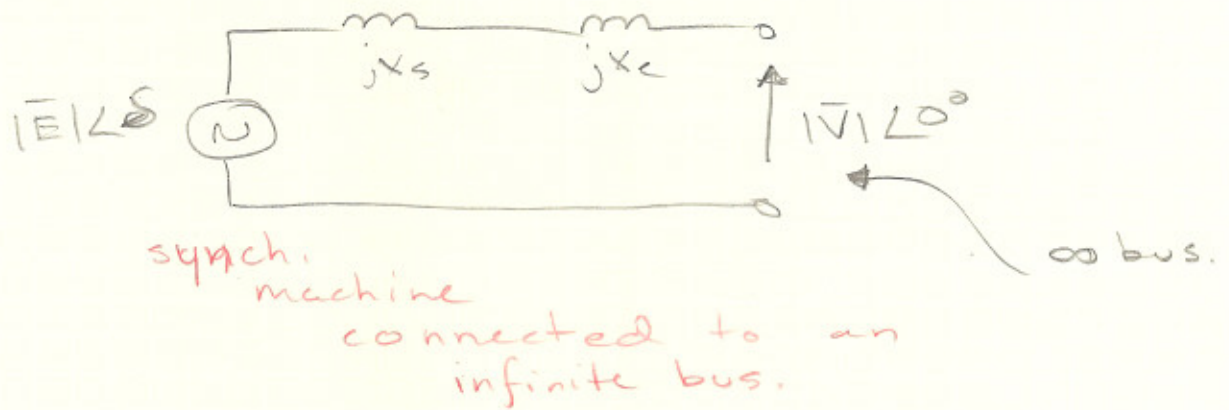 jXs jXe
|E̅|∠δ ~ |V̅|∠0°
∞ bus.
synch.
machine
connected to an
infinite bus.